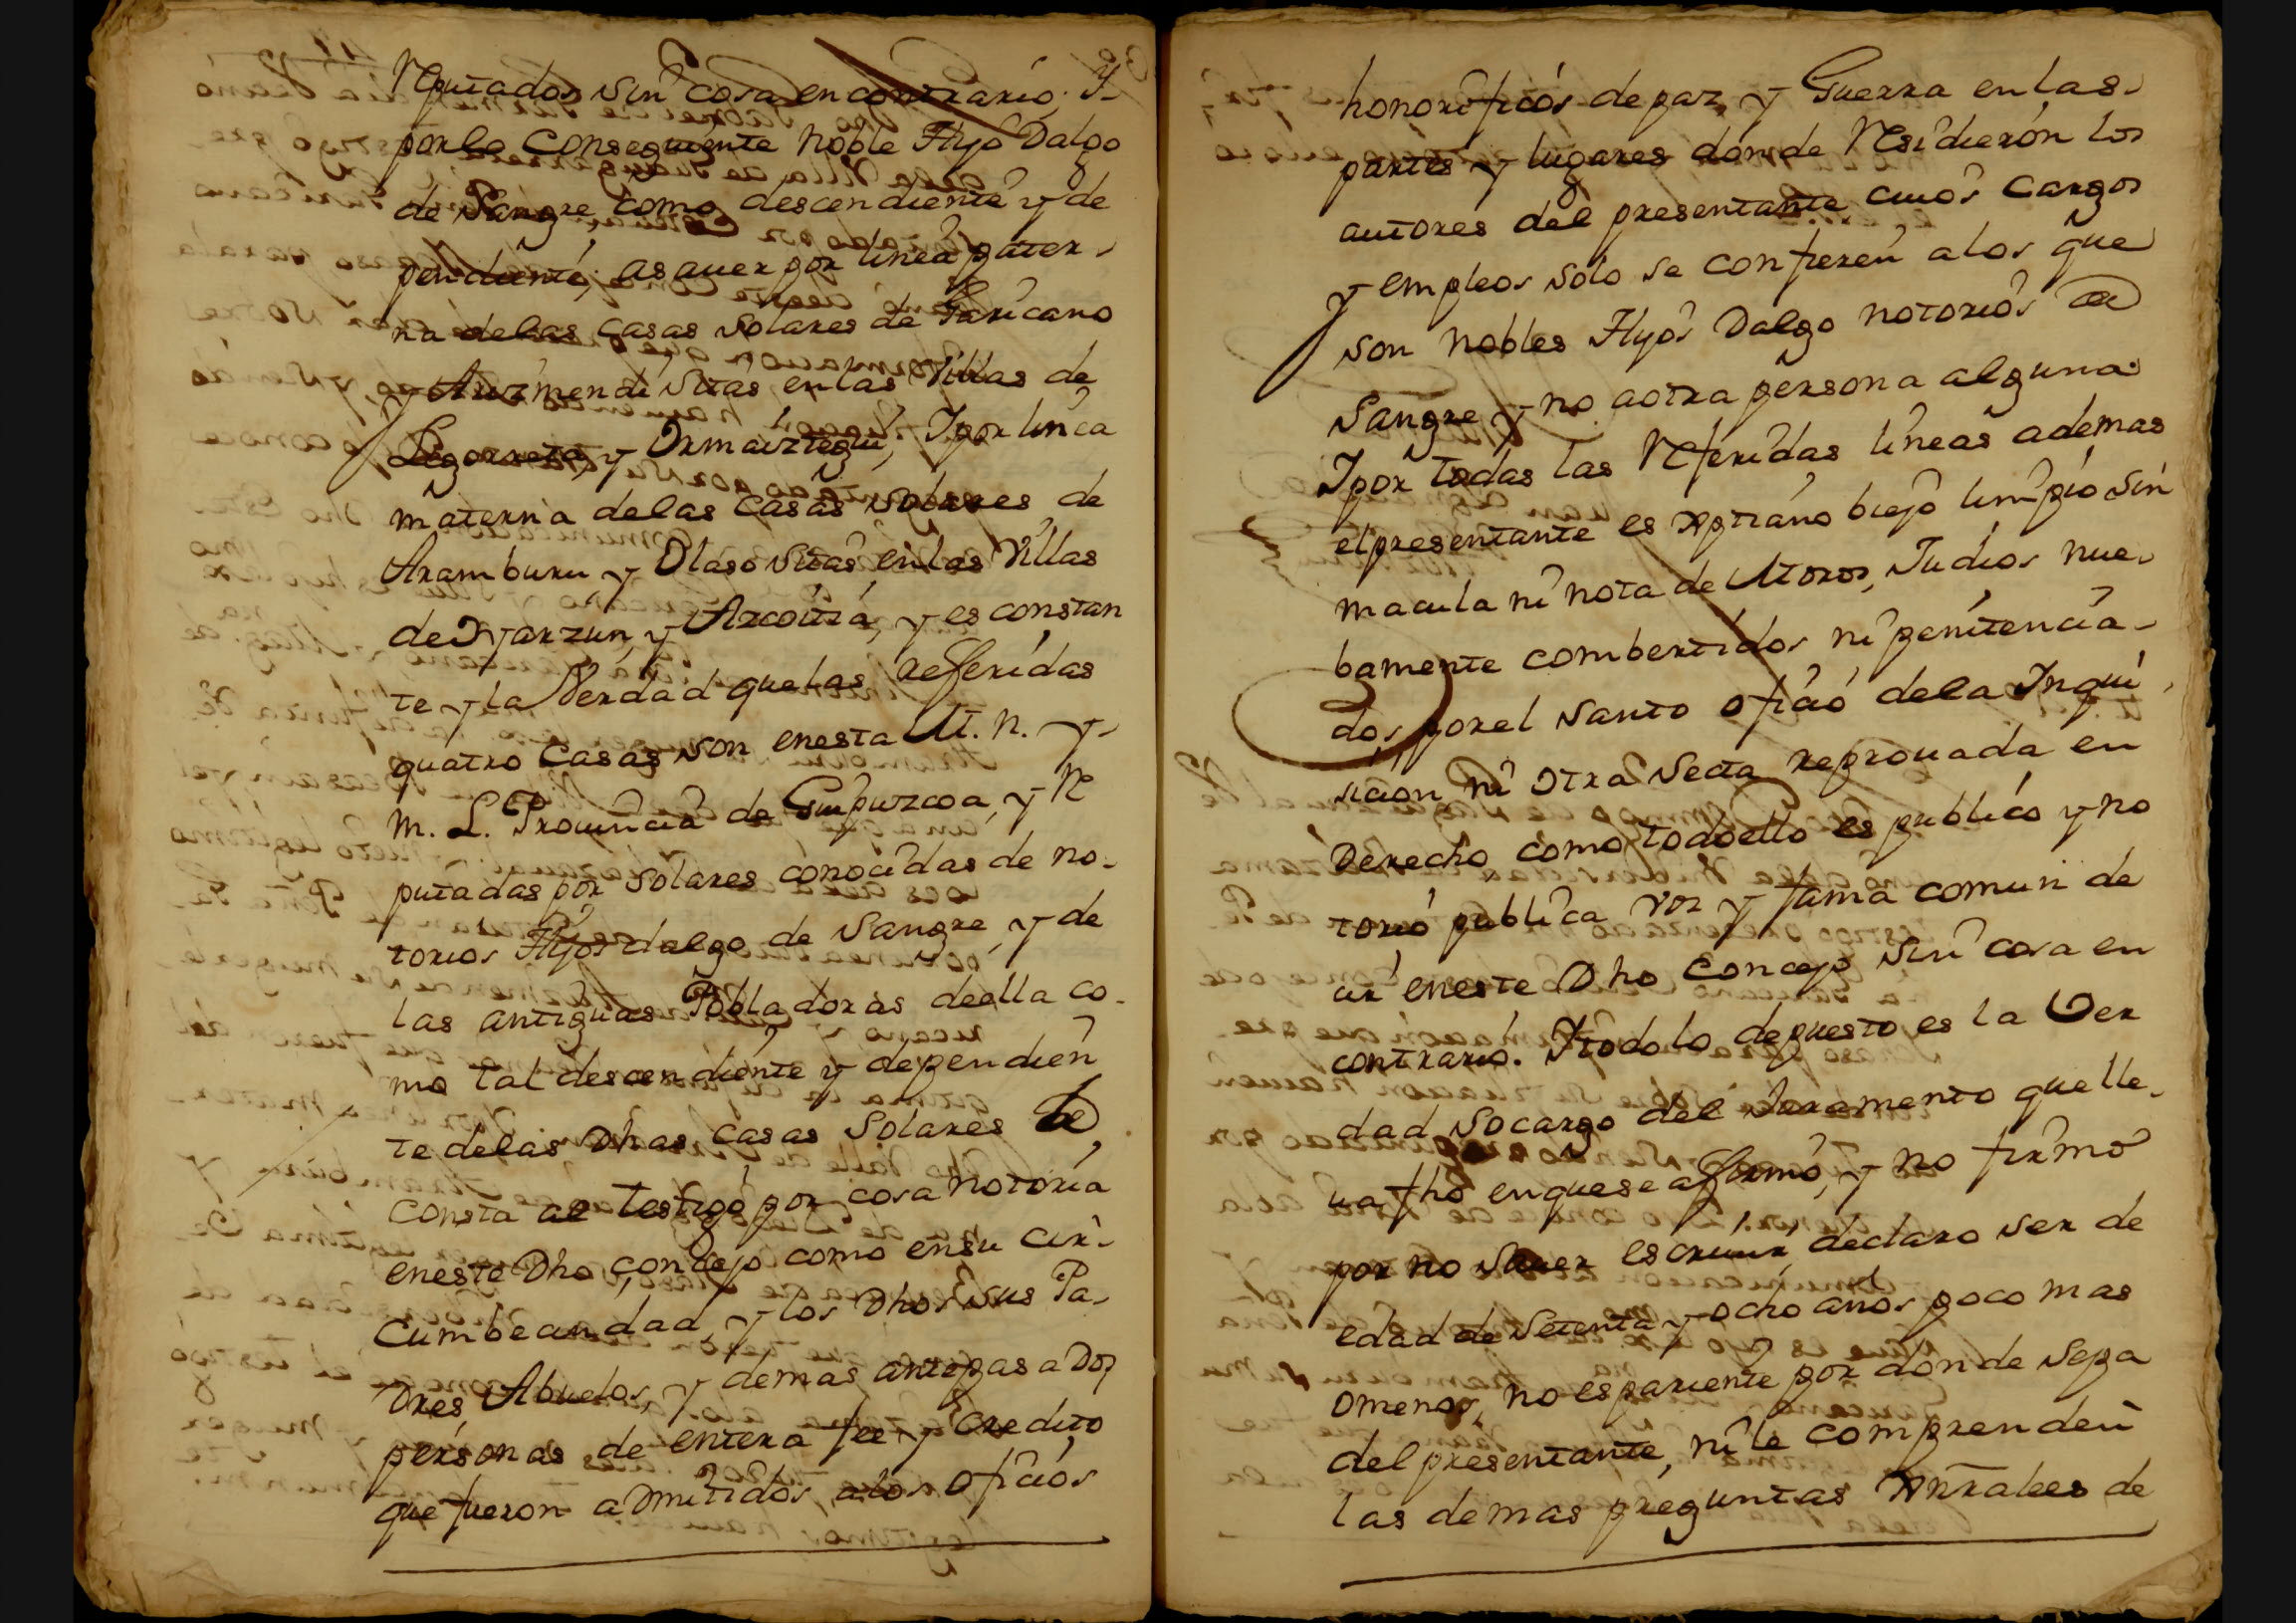 Reputados sin cosa en contrario, Y
por lo Conseguiente Noble Hyo Dalgo
de Sangre, como descendiente y de
pendiente, asauer por linea pater-
na delas Casas Solares de Garicano
y Arizmendi Sitas en las Villas de
Legorreta, y Ormaiztegui, Ipor linea
materna delas Casas solares de
Aramburu y Olaso Sitas en las Villas
de Oyarzun, y Azcoitia, y es constan
te y la Verdad que las Refferidas
quatro Casas son enesta M. N. y
M. L. Prouincia de Guipuzcoa, y Re
putadas por Solares conocidas de no-
torios Hyos dalgo de Sangre, y de
las antiguas Pobladoras de ella co-
mo tal descendiente y dependien
te delas Dhas Casas Solares le
Consta al testigo por cosa notoria
eneste Dho concejo como ensu Cir-
cumbecindad, y los Dhos sus Pa-
Dres, Abuelos, y demas antepasaDos
personas de entera fee y Credito
que fueron aDmitidos, alos oficios
honorificos de paz, y Guerra en las
partes y lugares donde Residieron los
autores del presentante cuios Cargos
y empleos solo se confieren alos que
son Nobles Hyos Dalgo notorios de
Sangre y no aotra persona alguna
Ipor todas las Referidas lineas ademas
el presentante es xptiano biejo limpio sin
macula ni nota de Moros, Judios nue-
bamente combertidos ni penitencia-
dos por el Santo oficio dela Inqui
sicion ni otra Secta reprouada en
Derecho como todoello es publico y no
torio publica voz y fama comun de
cir eneste Dho Concejo sin cosa en
contrario. Y todo lo depuesto es la Ver
dad socargo del Juramento que lle-
ua fho en que se affirmó, y no firmó
por no sauer escriuir, declaro ser de
edad de setenta y ocho años poco mas
omenos, no es pariente por donde sepa
del presentante, ni le comprenden
las demas preguntas Gnrales de